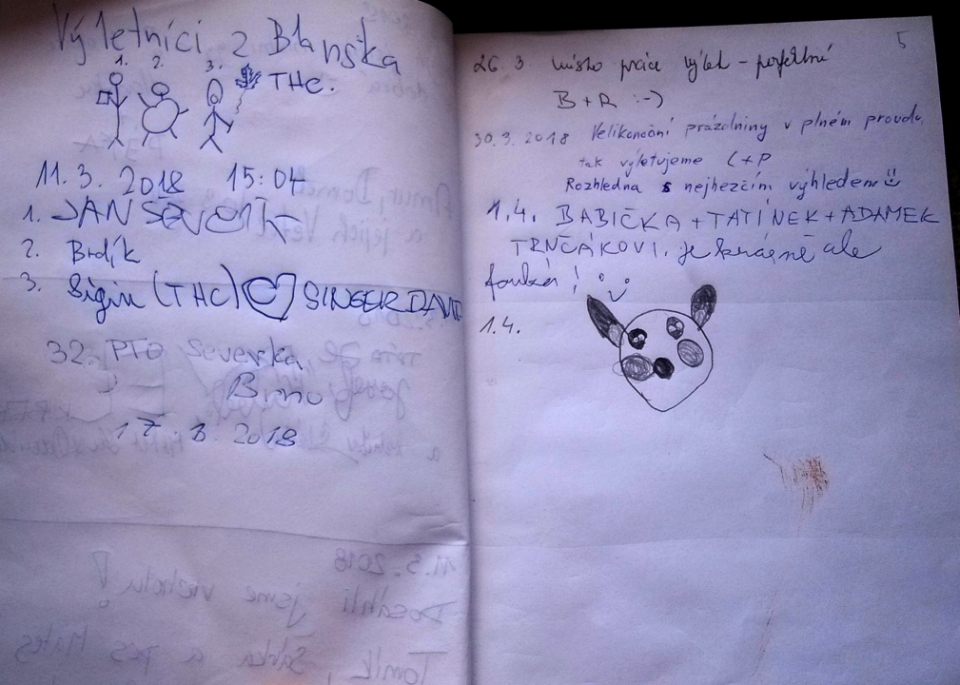 Výletníci z Blanska
1. 2. 3. THC.
11.3. 2018 15:04
1. JAN
2. Brdík
3. Sigin (THC) SINGER DAVID
32. PTO Severka
Brno
17. 3. 2018
5
26. 3. místo práce výlet - perfektní
B + R :-)
30.3. 2018 Velikonoční prázdniny v plném proudu,
tak výletujeme L + P
Rozhledna s nejhezčím výhledem
1.4. BABIČKA + TATÍNEK + ADAMEK
TRNČÁKOVI, je krásně ale
fouká!
1.4.
11.3. 2018
Dosáhli jsme vrcholu!
Tomík, Šárka a pes